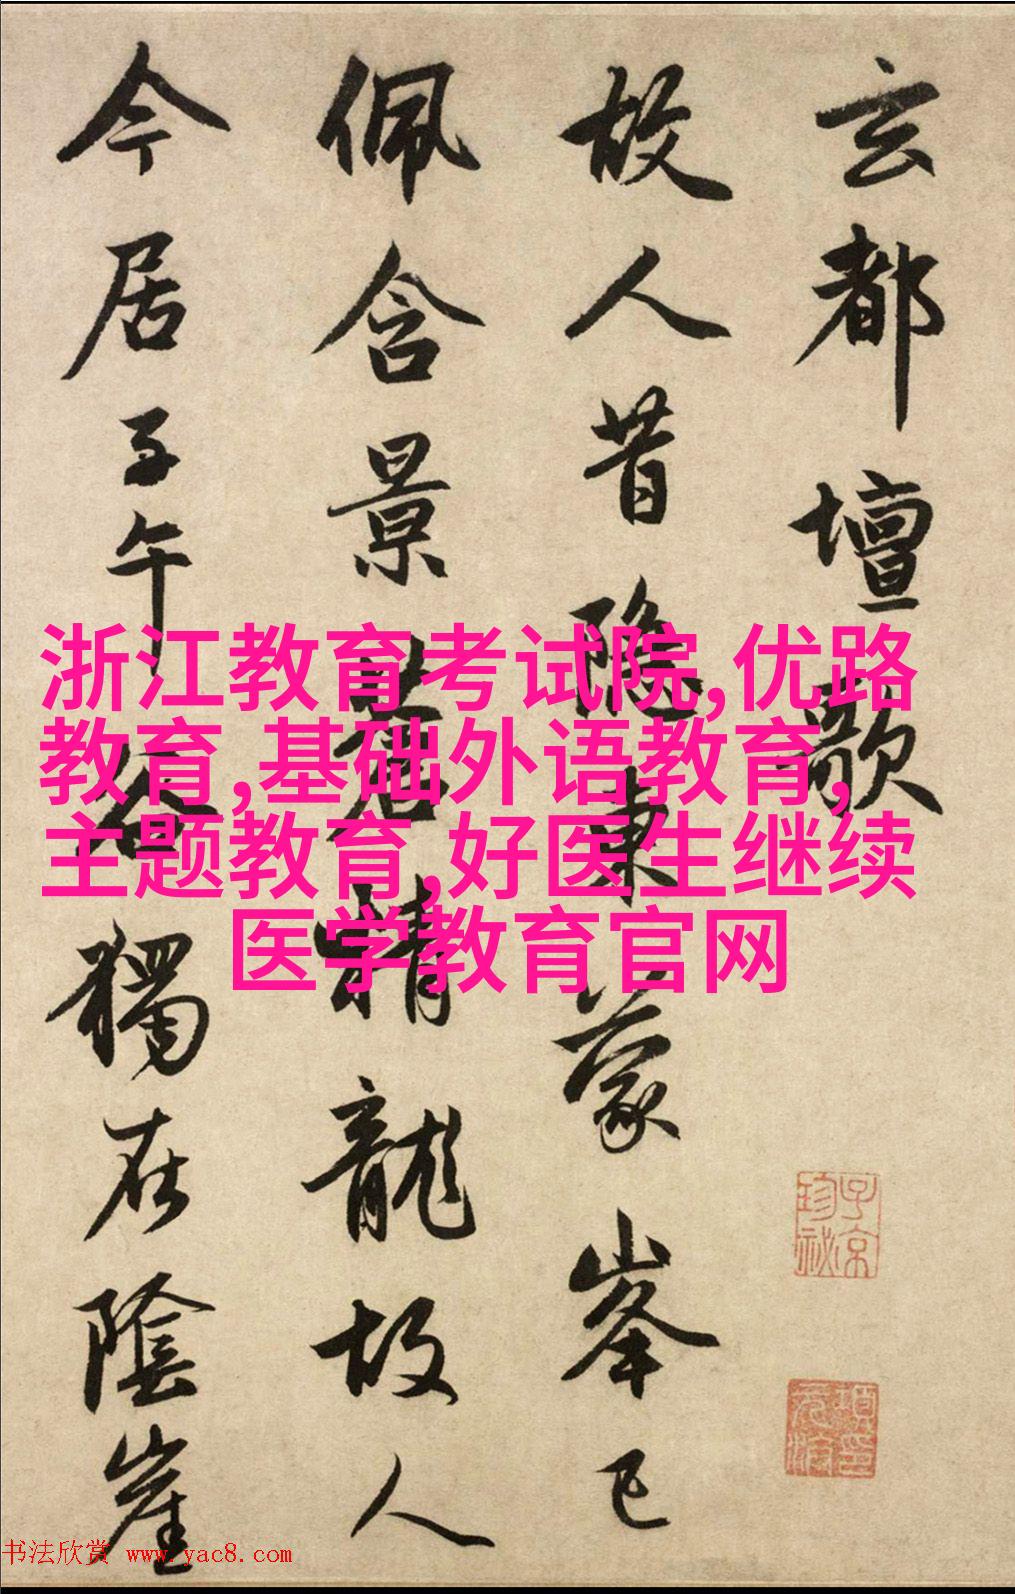 玄都壇歌
故人昔隐東蒙峯已
佩含景蒼精龍故人
今居子午谷獨在陰崖
浙江教育考试院,优路
教育,基础外语教育,
主题教育,好医生继续
医学教育官网
子京
珍祕
书法欣赏 www.yac8.com